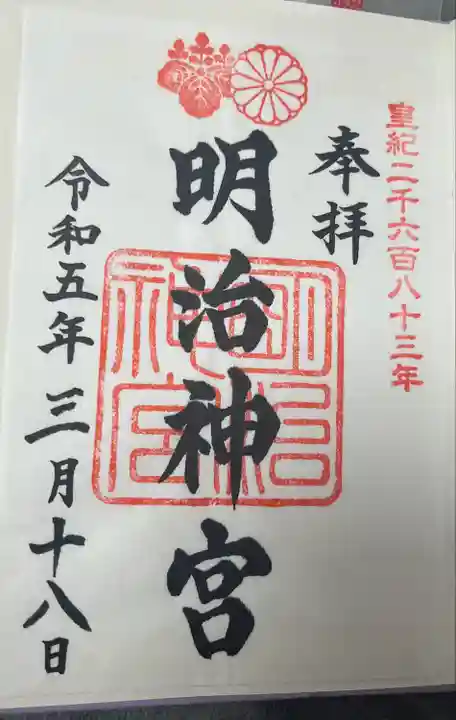 皇紀二千六百八十三年
奉拝
明治神宮
明治神宮
令和五年三月十八日